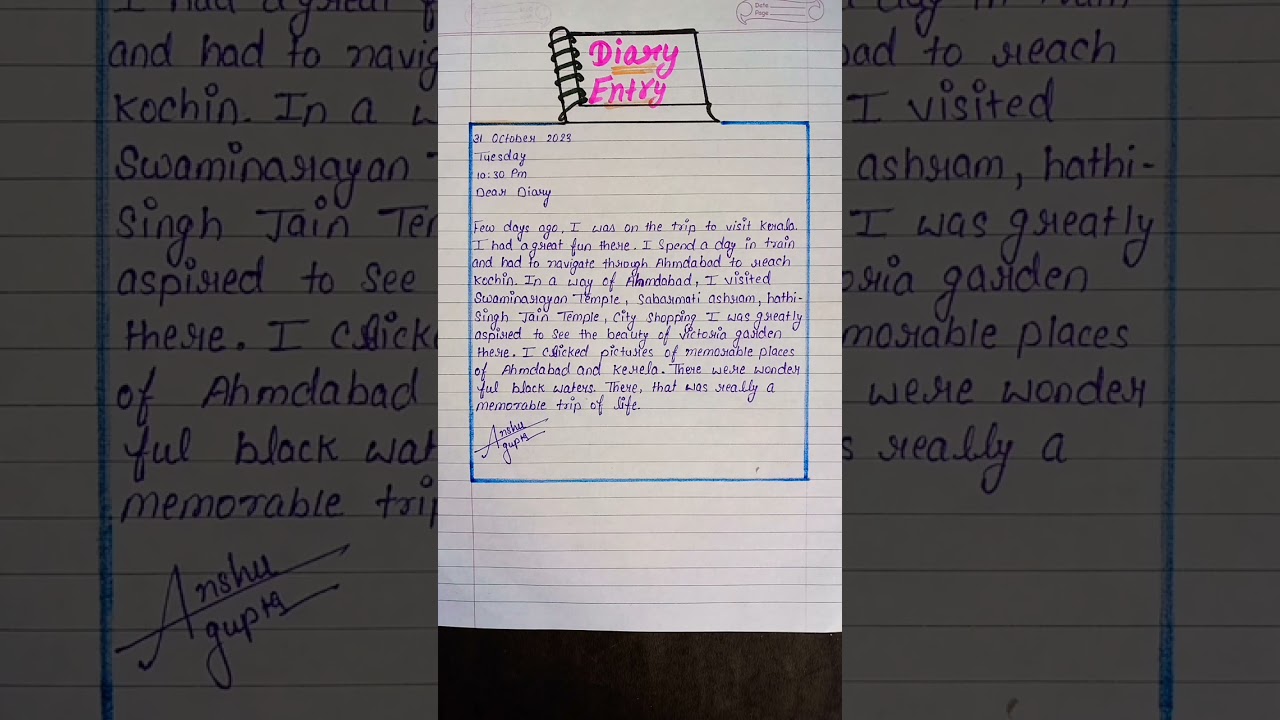 Date
Page
Diary
Entry
31 October 2023
Tuesday
10:30 Pm
Dear Diary
Few days ago, I was on the trip to visit Kerala.
I had a great fun there. I Spend a day in train
and had to navigate through Ahmdabad to reach
Kochin. In a way of Ahmdabad, I visited
Swaminarayan Temple, Sabarmati ashram, hathi-
Singh Jain Temple, City Shopping I was greatly
aspired to see the beauty of victoria garden
there. I clicked pictures of memorable places
of Ahmdabad and Kerela. There were wonder
ful black waters. There, that was really a
memorable trip of life.
Anshu
gupta